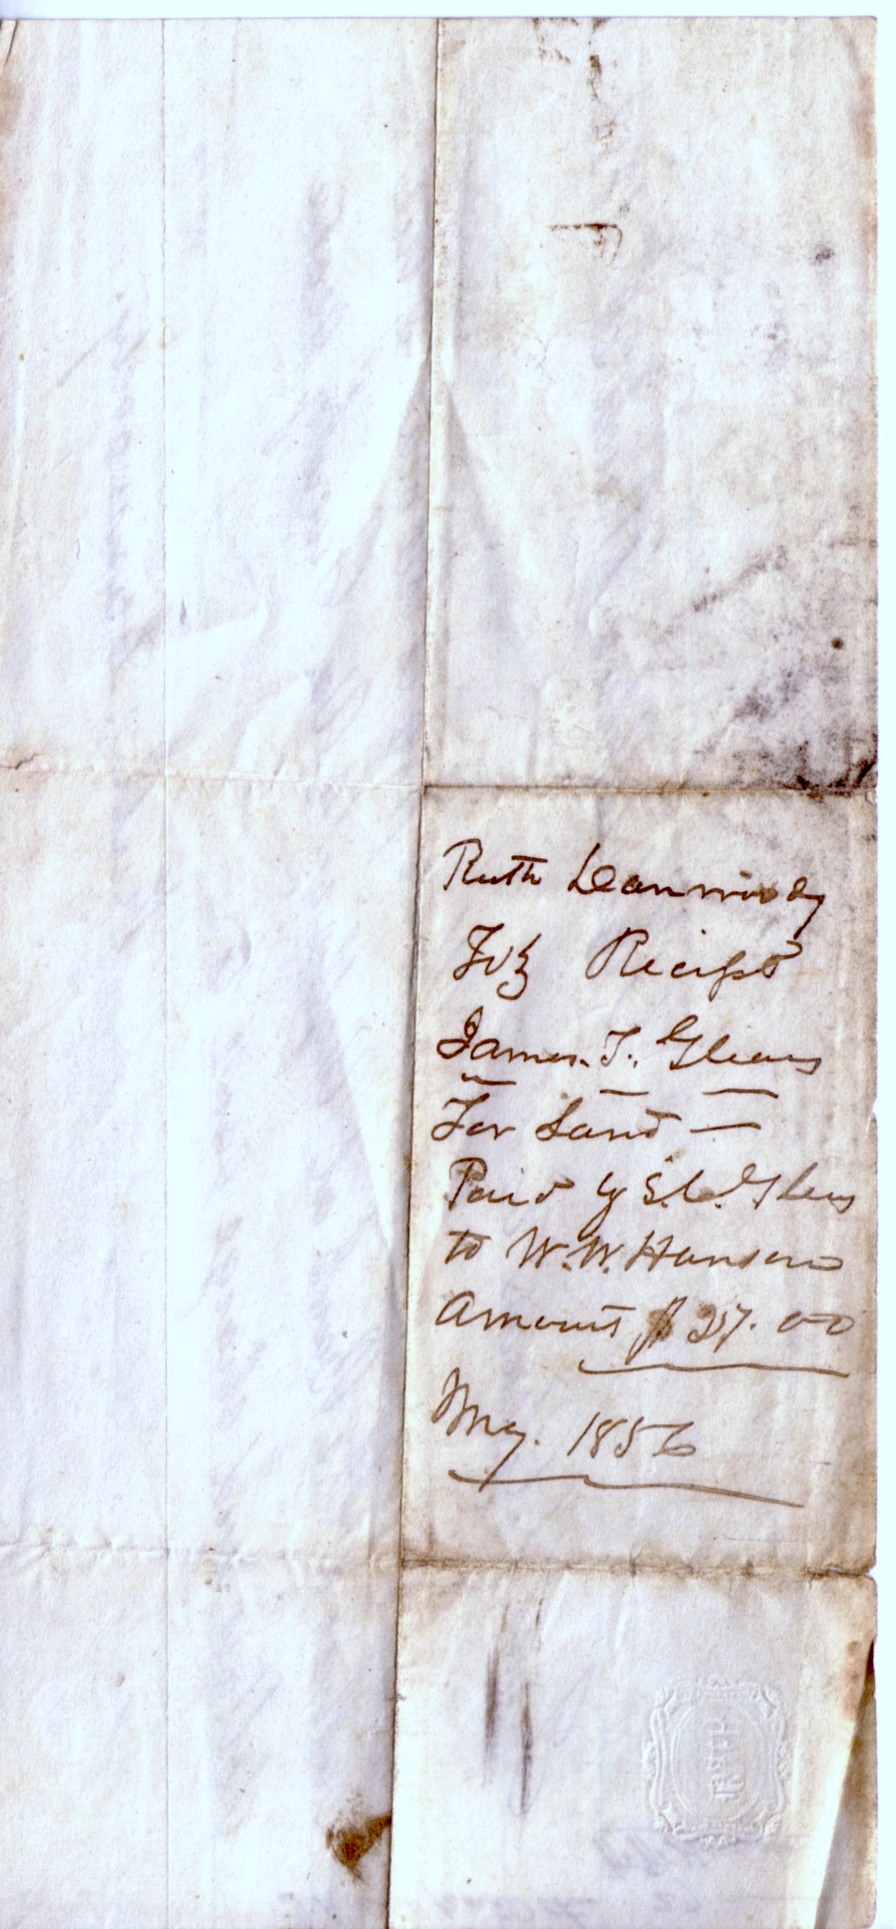 Ruth Danwoody
Receipt
James. T. Glenns
For Land —
Paid by S. C. Glenns
to W. W. Hanson
Amount $ 27.00
May. 1856